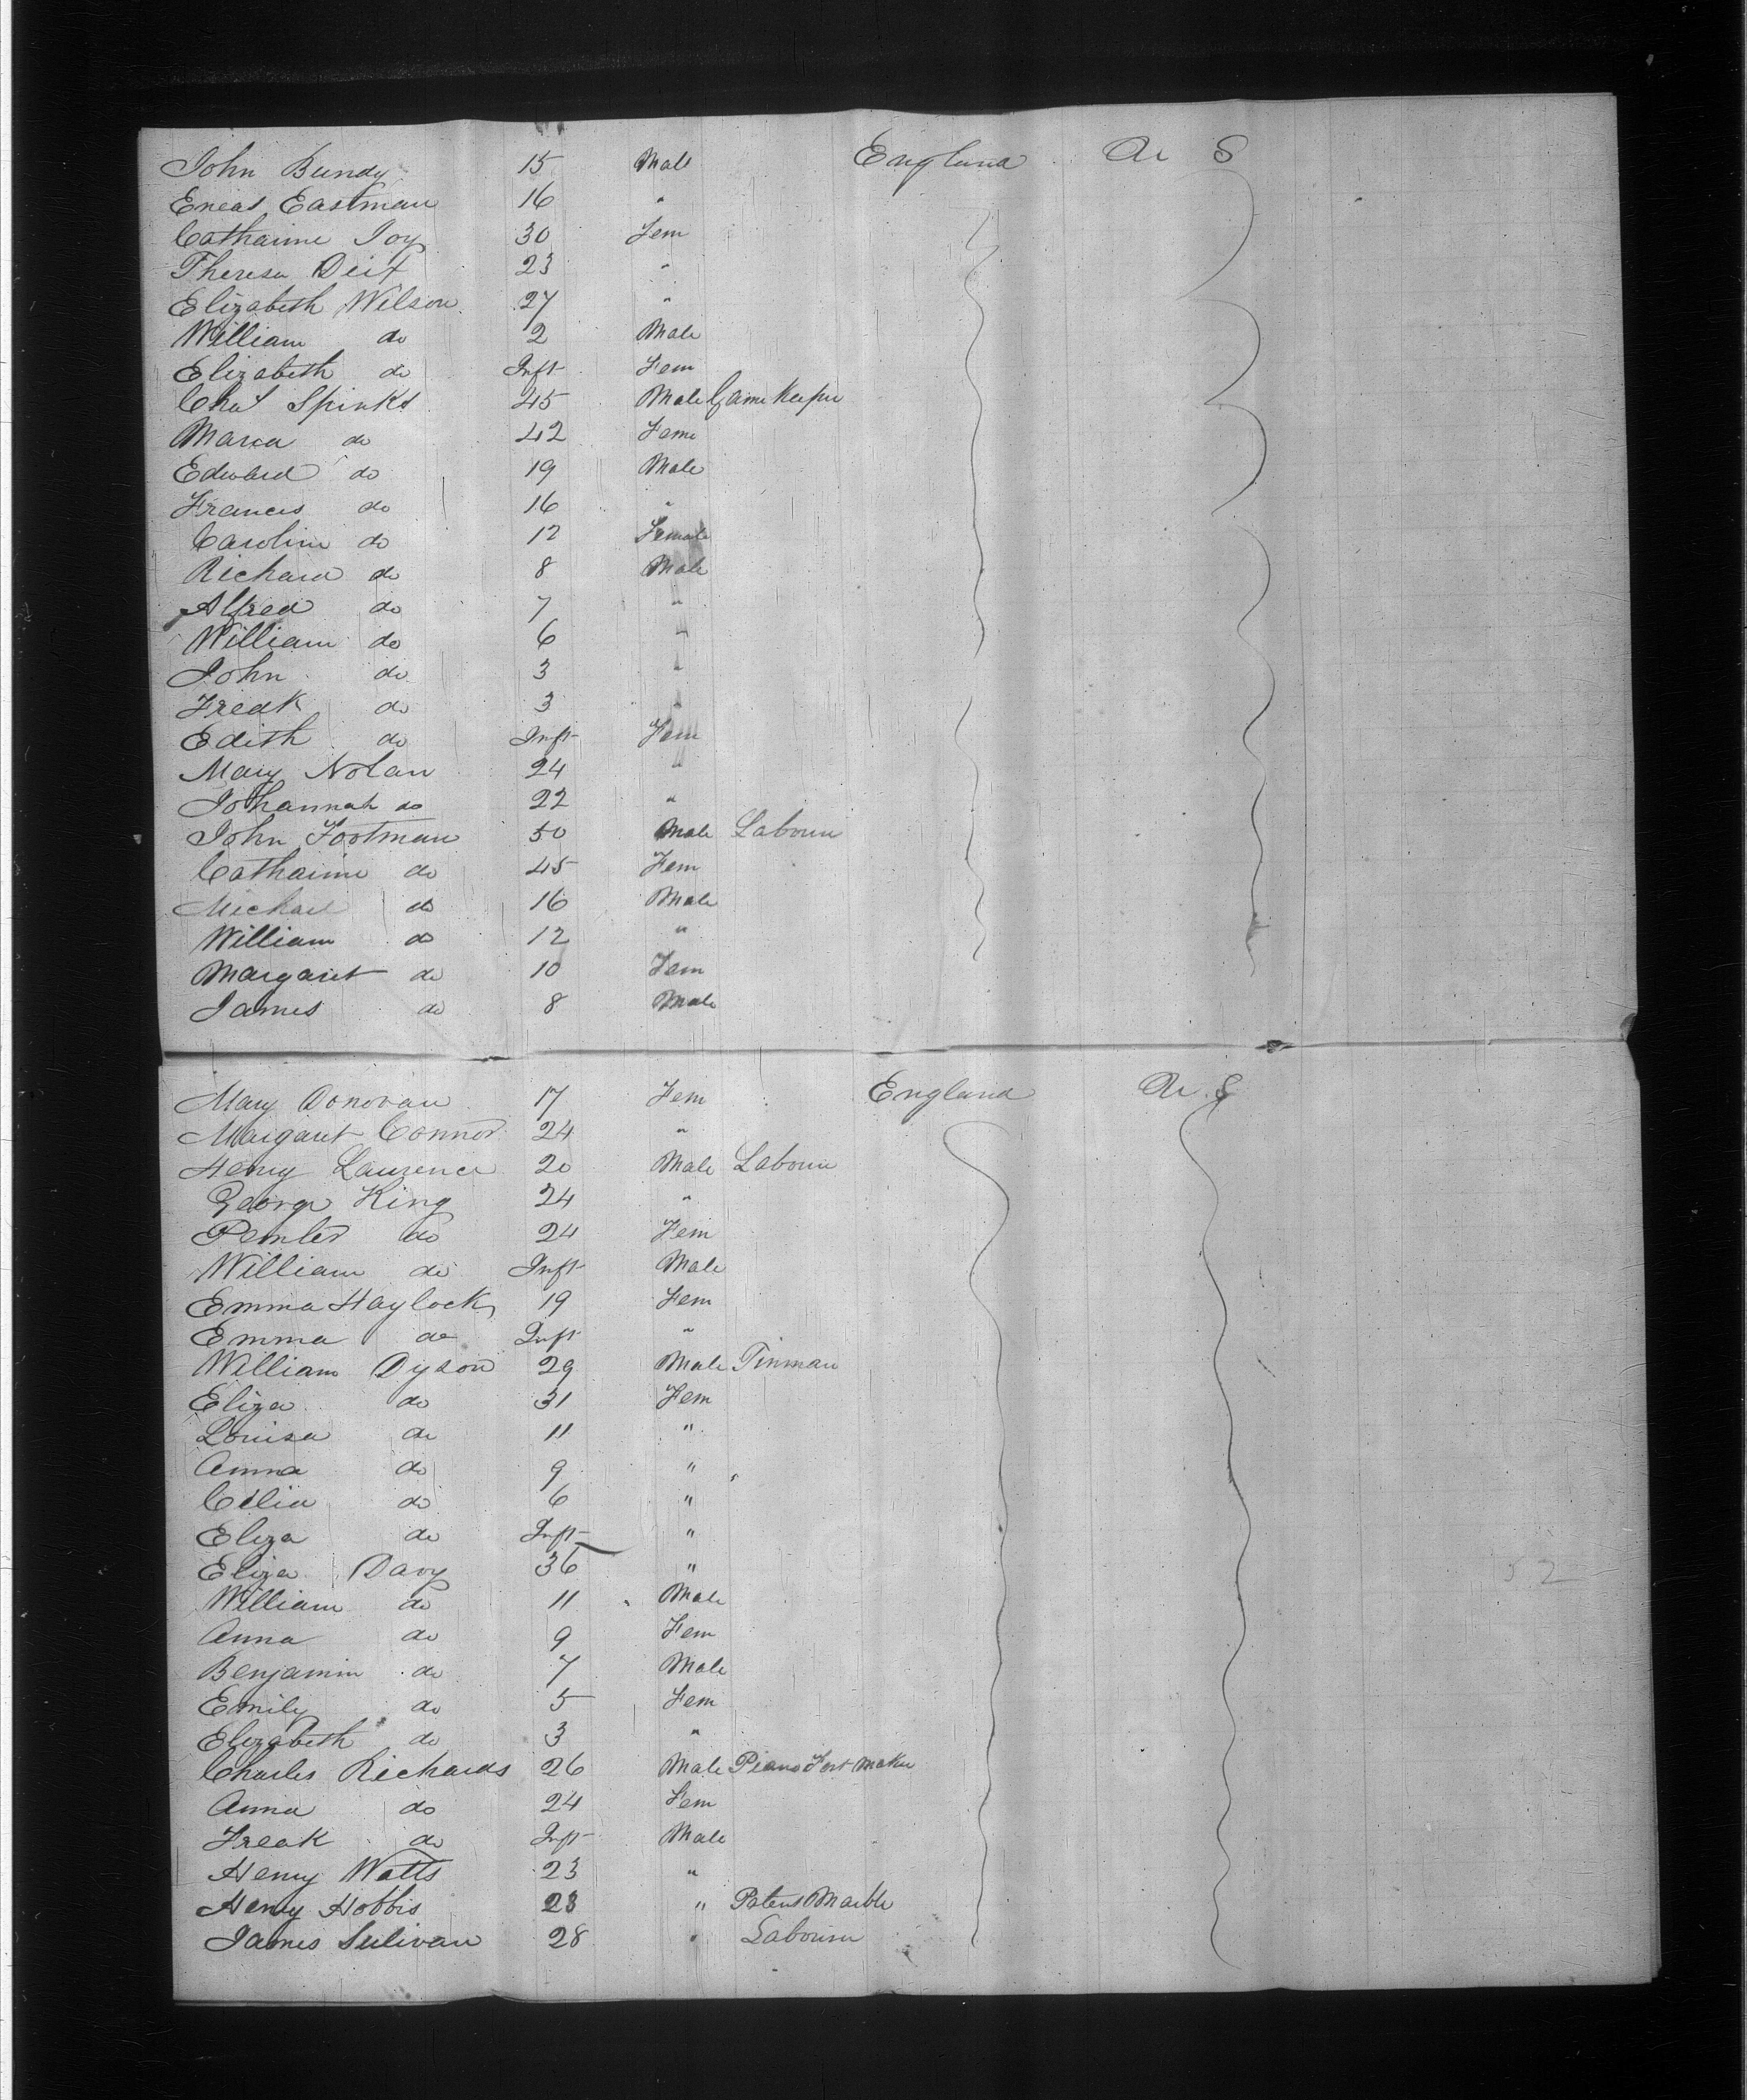 John Bundy 15 Male England Ac S
Eneas Eastman 16 "
Catharine Joy 30 Fem
Theresa Deit 23 "
Elizabeth Wilson 27 "
William do 2 Male
Elizabeth do Inft Fem
Chas Spinks 45 Male Game Keeper
Maria do 42 Feme
Edward do 19 Male
Frances do 16 "
Caroline do 12 Female
Richard do 8 Male
Alfred do 7 "
William do 6 "
John do 3 "
Fredk do 3 "
Edith do Inft Fem
Mary Nolan 24 "
Johannah do 22 "
John Footman 50 Male Labourer
Catharine do 45 Fem
Michael do 16 Male
William do 12 "
Margaret do 10 Fem
James do 8 Male
Mary Donovan 17 Fem England S
Margaret Connor 24 "
Henry Laurence 20 Male Labourer
George King 24 "
do 24 Fem
William do Inft Male
Emma Haylock 19 Fem
Emma do Inft "
William Dyson 29 Male Tinman
Eliza do 31 Fem
Louisa do 11 "
Anna do 9 "
Celia do 6 "
Eliza do Inft "
Eliza Davy 36 "
William do 11 Male
Anna do 9 Fem
Benjamin do 7 Male
Emily do 5 Fem
Elizabeth do 3 "
Charles Richards 26 Male Piano Fort Maker
Anna do 24 Fem
Fredk do Inft Male
Henry Watts 23 "
Henry Hobbis 23 " Patent Marble
James Sulivan 28 " Labourer
52